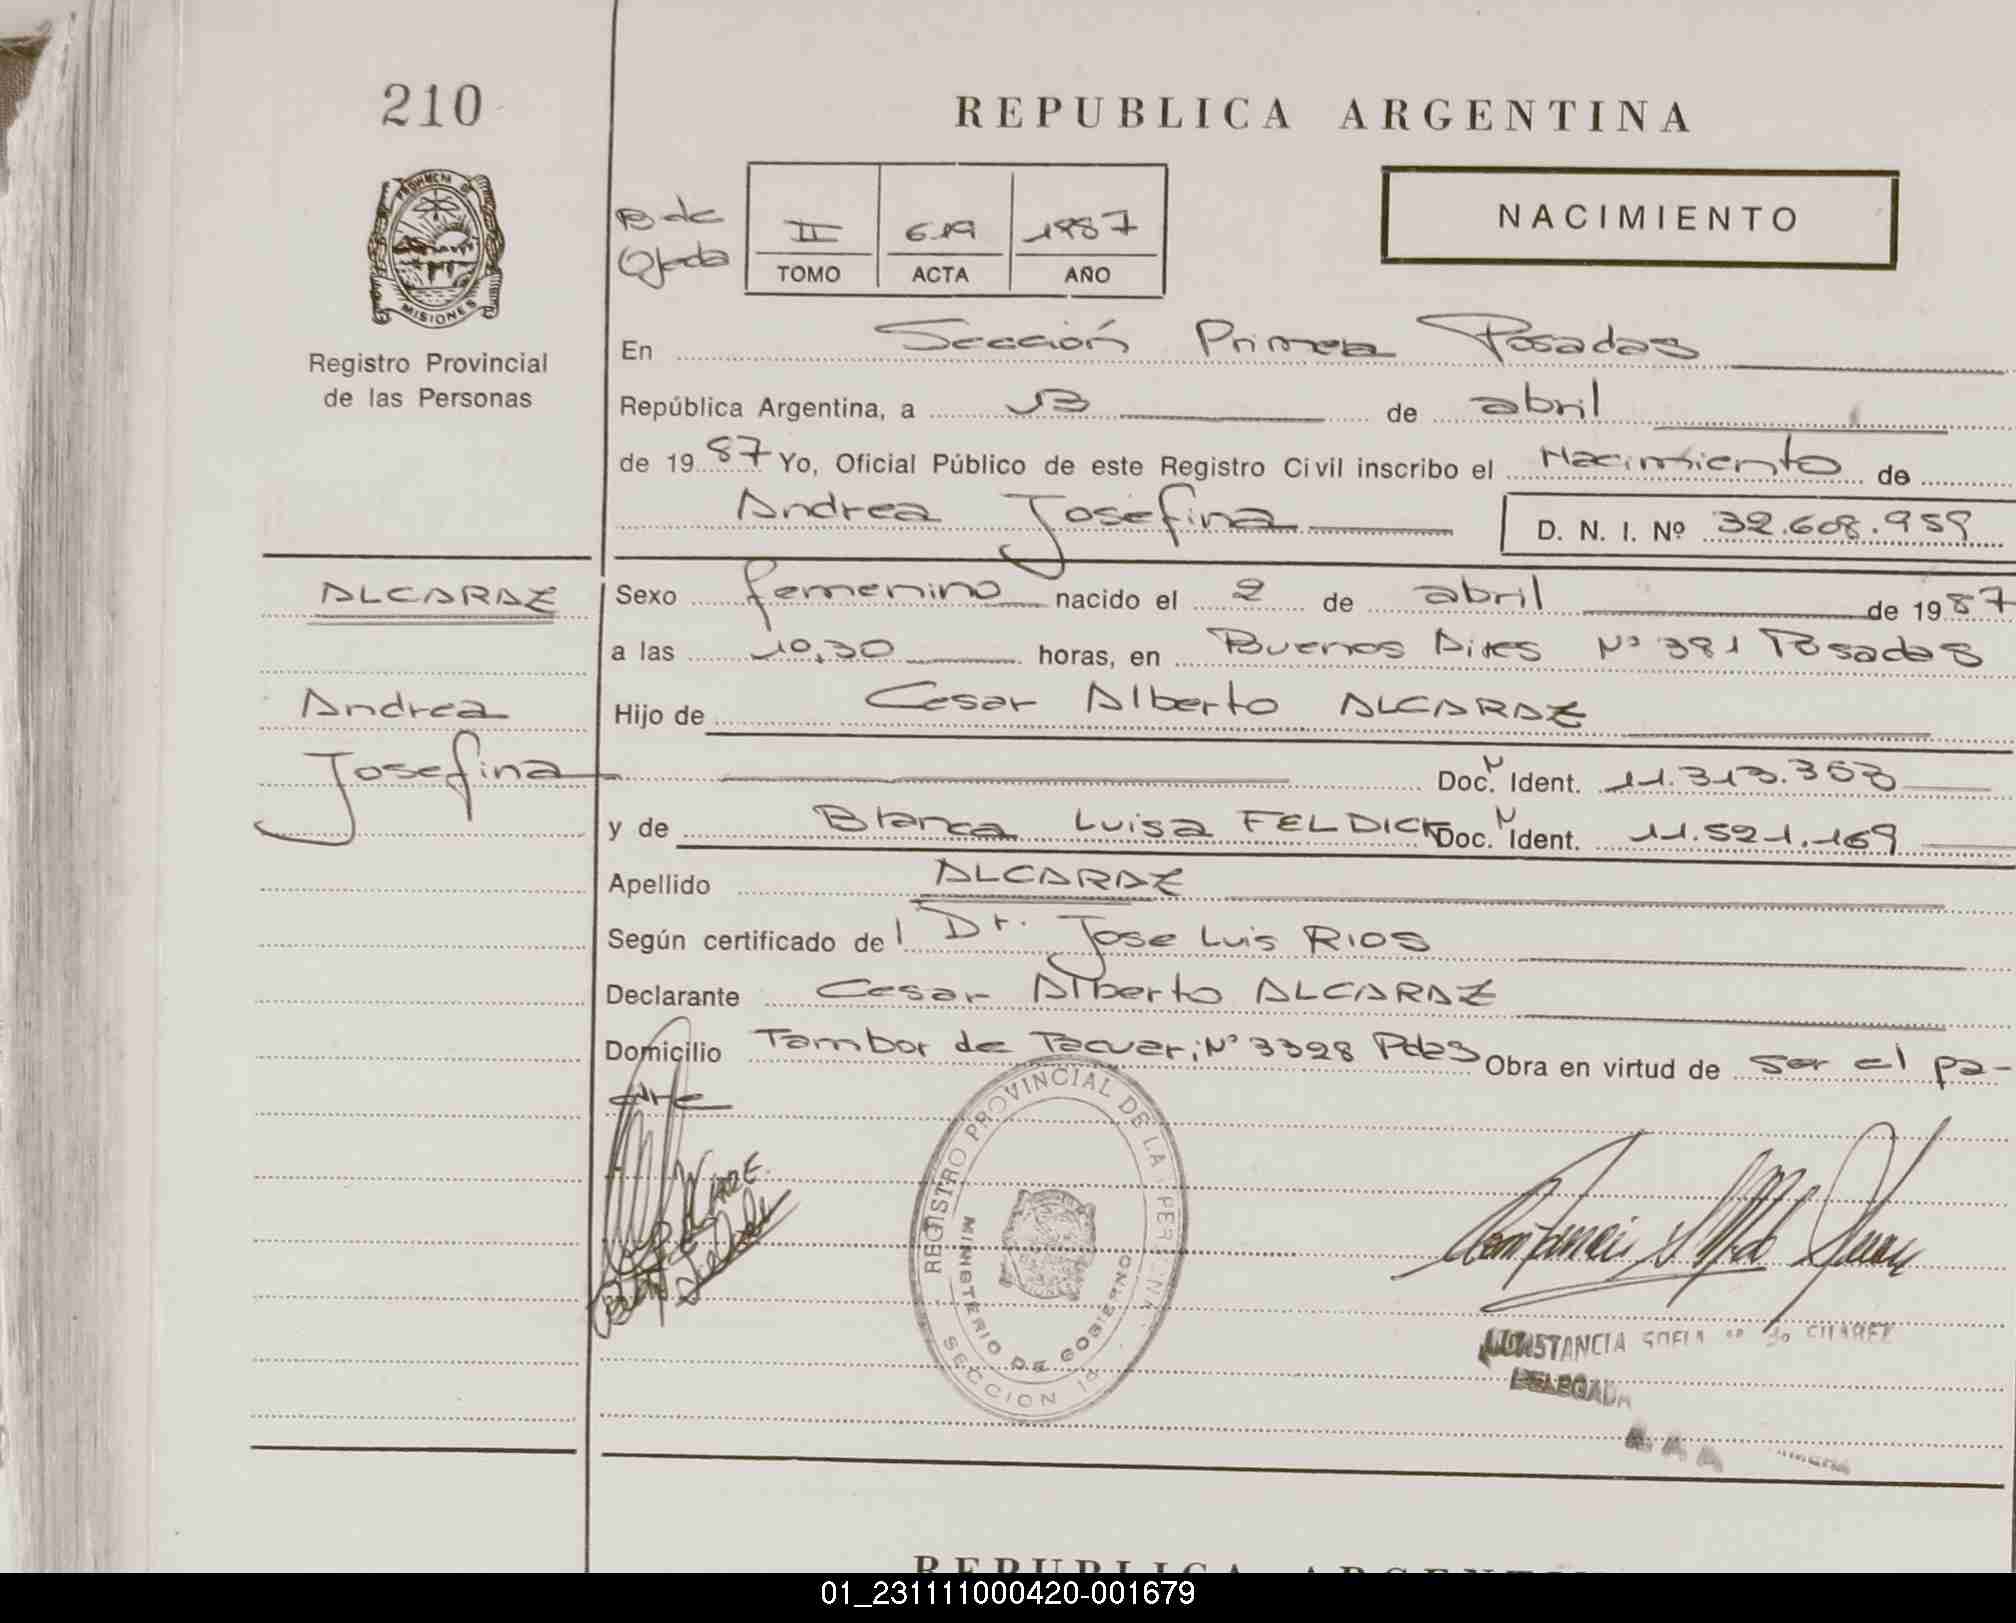 210
REPUBLICA ARGENTINA
PROVINCIA DE
MISIONES
Registro Provincial
de las Personas
B de
Ojeda
II 619 1987
TOMO ACTA AÑO
NACIMIENTO
En Sección Primera Posadas
República Argentina, a 13 de abril
de 1987 Yo, Oficial Público de este Registro Civil inscribo el Nacimiento de
Andrea Josefina D. N. I. Nº 32.608.959
ALCARAZ
Andrea
Josefina
Sexo femenino nacido el 2 de abril de 1987
a las 10,30 horas, en Buenos Aires Nº 381 Posadas
Hijo de Cesar Alberto ALCARAZ
Doc. N Ident. 11.313.353
y de Blanca Luisa FELDICK Doc. N Ident. 11.521.169
Apellido ALCARAZ
Según certificado del Dr. Jose Luis RIOS
Declarante Cesar Alberto ALCARAZ
Domicilio Tambor de Tacuari Nº 3398 Pdas Obra en virtud de ser el pa-
dre
REGISTRO PROVINCIAL DE LA PERSONA
MINISTERIO DE GOBIERNO
SECCION 1a
CONSTANCIA SOFIA
DELEGADA
REPUBLICA ARGENTINA
01_231111000420-001679